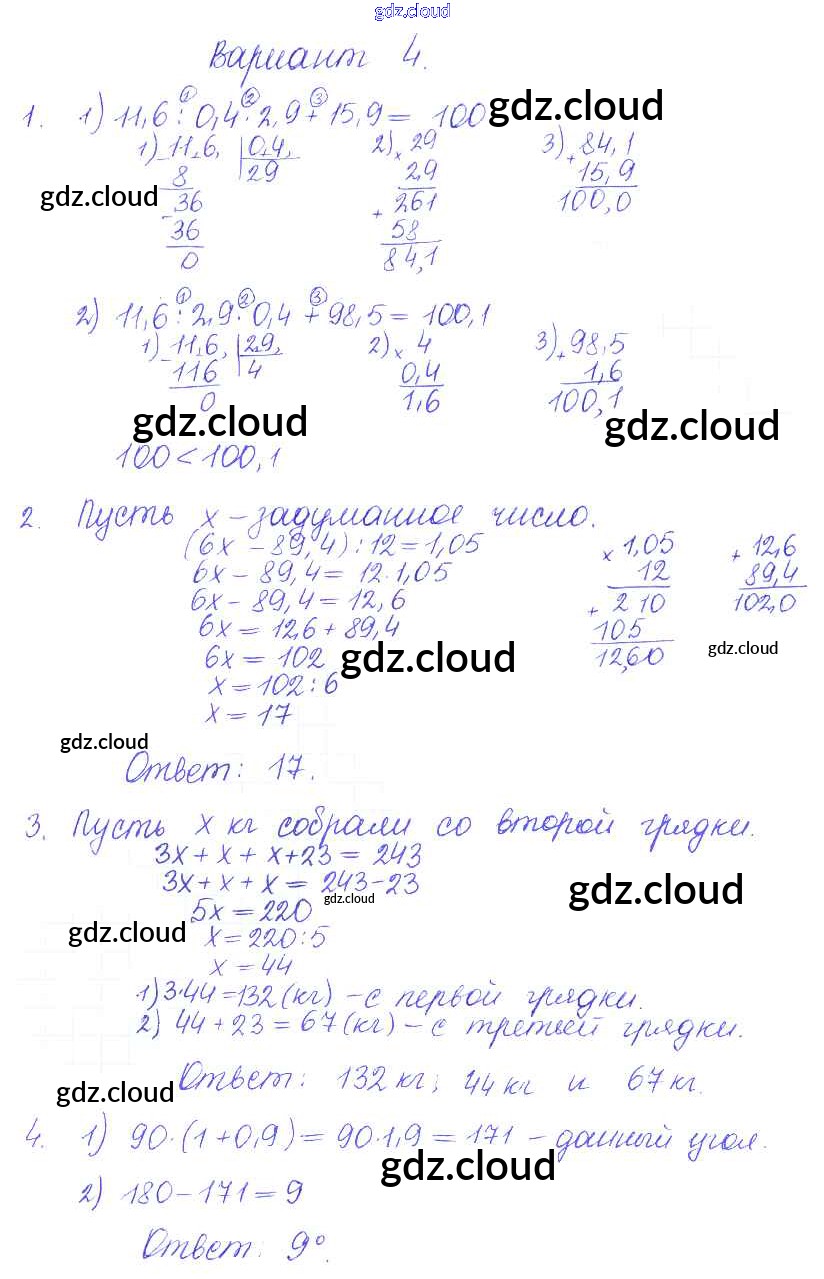 gdz.cloud
Вариант 4.
1. 1) 11,6 : 0,4 · 2,9 + 15,9 = 100
① ② ③
gdz.cloud
1) 11,6, 0,4,
8 29
36
36
0
2) × 29
2,9
+ 261
58
84,1
3) + 84,1
15,9
100,0
gdz.cloud
2) 11,6 : 2,9 · 0,4 + 98,5 = 100,1
① ② ③
1) 11,6, 2,9,
116 4
0
2) × 4
0,4
1,6
3) + 98,5
1,6
100,1
gdz.cloud
gdz.cloud
100 < 100,1
2. Пусть х – задуманное число.
(6х – 89,4) : 12 = 1,05
6х – 89,4 = 12 · 1,05
6х – 89,4 = 12,6
6х = 12,6 + 89,4
6х = 102
х = 102 : 6
х = 17
× 1,05
12
+ 210
105
12,60
+ 12,6
89,4
102,0
gdz.cloud
gdz.cloud
gdz.cloud
Ответ: 17.
3. Пусть х кг собрали со второй грядки.
3х + х + х + 23 = 243
3х + х + х = 243 – 23
gdz.cloud
gdz.cloud
5х = 220
gdz.cloud
х = 220 : 5
х = 44
1) 3 · 44 = 132 (кг) – с первой грядки.
2) 44 + 23 = 67 (кг) – с третьей грядки.
gdz.cloud
Ответ: 132 кг; 44 кг и 67 кг.
4. 1) 90 · (1 + 0,9) = 90 · 1,9 = 171 – данный угол.
gdz.cloud
2) 180 – 171 = 9
Ответ: 9°.